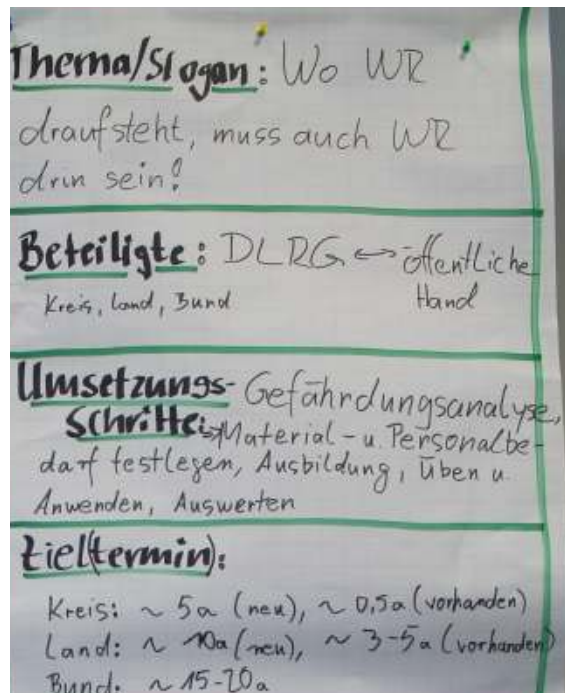 Thema/Slogan: Wo WR
draufsteht, muss auch WR
drin sein!
Beteiligte: DLRG ↔ öffentliche
Kreis, Land, Bund Hand
Umsetzungs- Gefährdungsanalyse,
Schritte: Material- u. Personalbe-
darf festlegen, Ausbildung, Üben u.
Anwenden, Auswerten
Ziel(termin):
Kreis: ~ 5a (neu), ~ 0,5a (vorhanden)
Land: ~ 10a (neu), ~ 3-5a (vorhanden)
Bund: ~ 15-20a